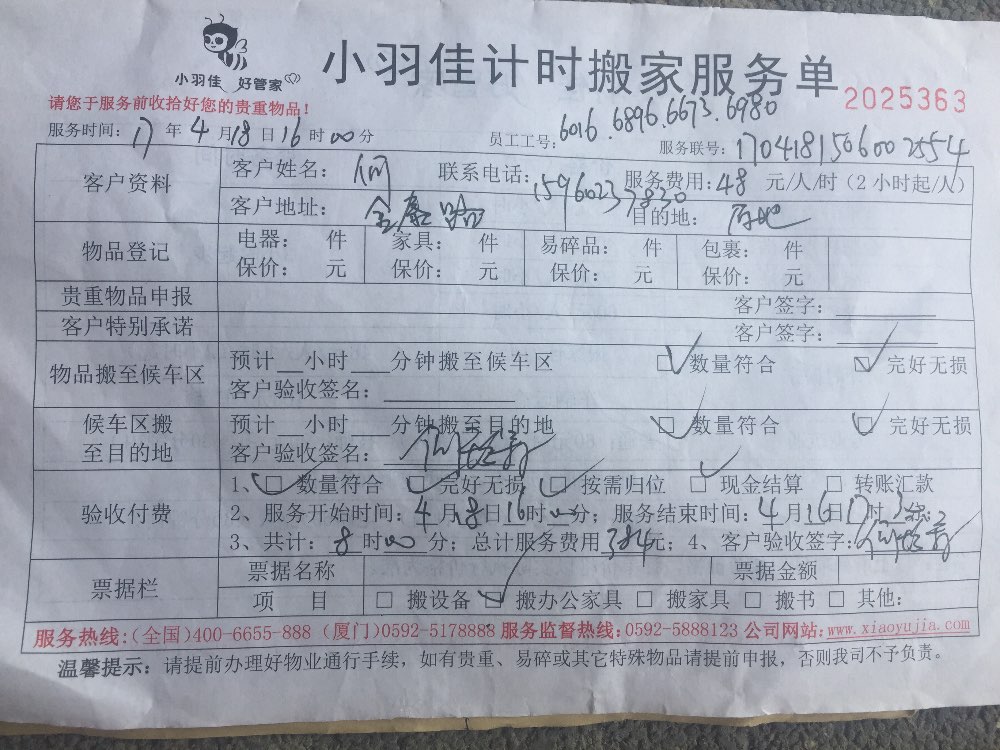 小羽佳 好管家
小羽佳计时搬家服务单
2025363
请您于服务前收拾好您的贵重物品！
服务时间：17年4月18日16时00分
员工工号：6016.6896.6673.6980
服务联号：1704181506002554
客户资料
客户姓名：何 联系电话：15960237830 服务费用：48 元/人/时（2小时起/人）
客户地址：金康路 目的地：
物品登记
电器： 件 家具： 件 易碎品： 件 包裹： 件
保价： 元 保价： 元 保价： 元 保价： 元
贵重物品申报 客户签字：
客户特别承诺 客户签字：
物品搬至候车区
预计 小时 分钟搬至候车区 数量符合 完好无损
客户验收签名：
候车区搬至目的地
预计 小时 分钟搬至目的地 数量符合 完好无损
客户验收签名：
验收付费
1、数量符合 完好无损 按需归位 现金结算 转账汇款
2、服务开始时间：4月18日16时00分；服务结束时间：4月16日17时
3、共计：8时00分；总计服务费用384元；4、客户验收签字：
票据栏
票据名称 票据金额
项 目 搬设备 搬办公家具 搬家具 搬书 其他：
服务热线：（全国）400-6655-888（厦门）0592-5178888 服务监督热线：0592-5888123 公司网站：www.xiaoyujia.com
温馨提示：请提前办理好物业通行手续，如有贵重、易碎或其它特殊物品请提前申报，否则我司不予负责。